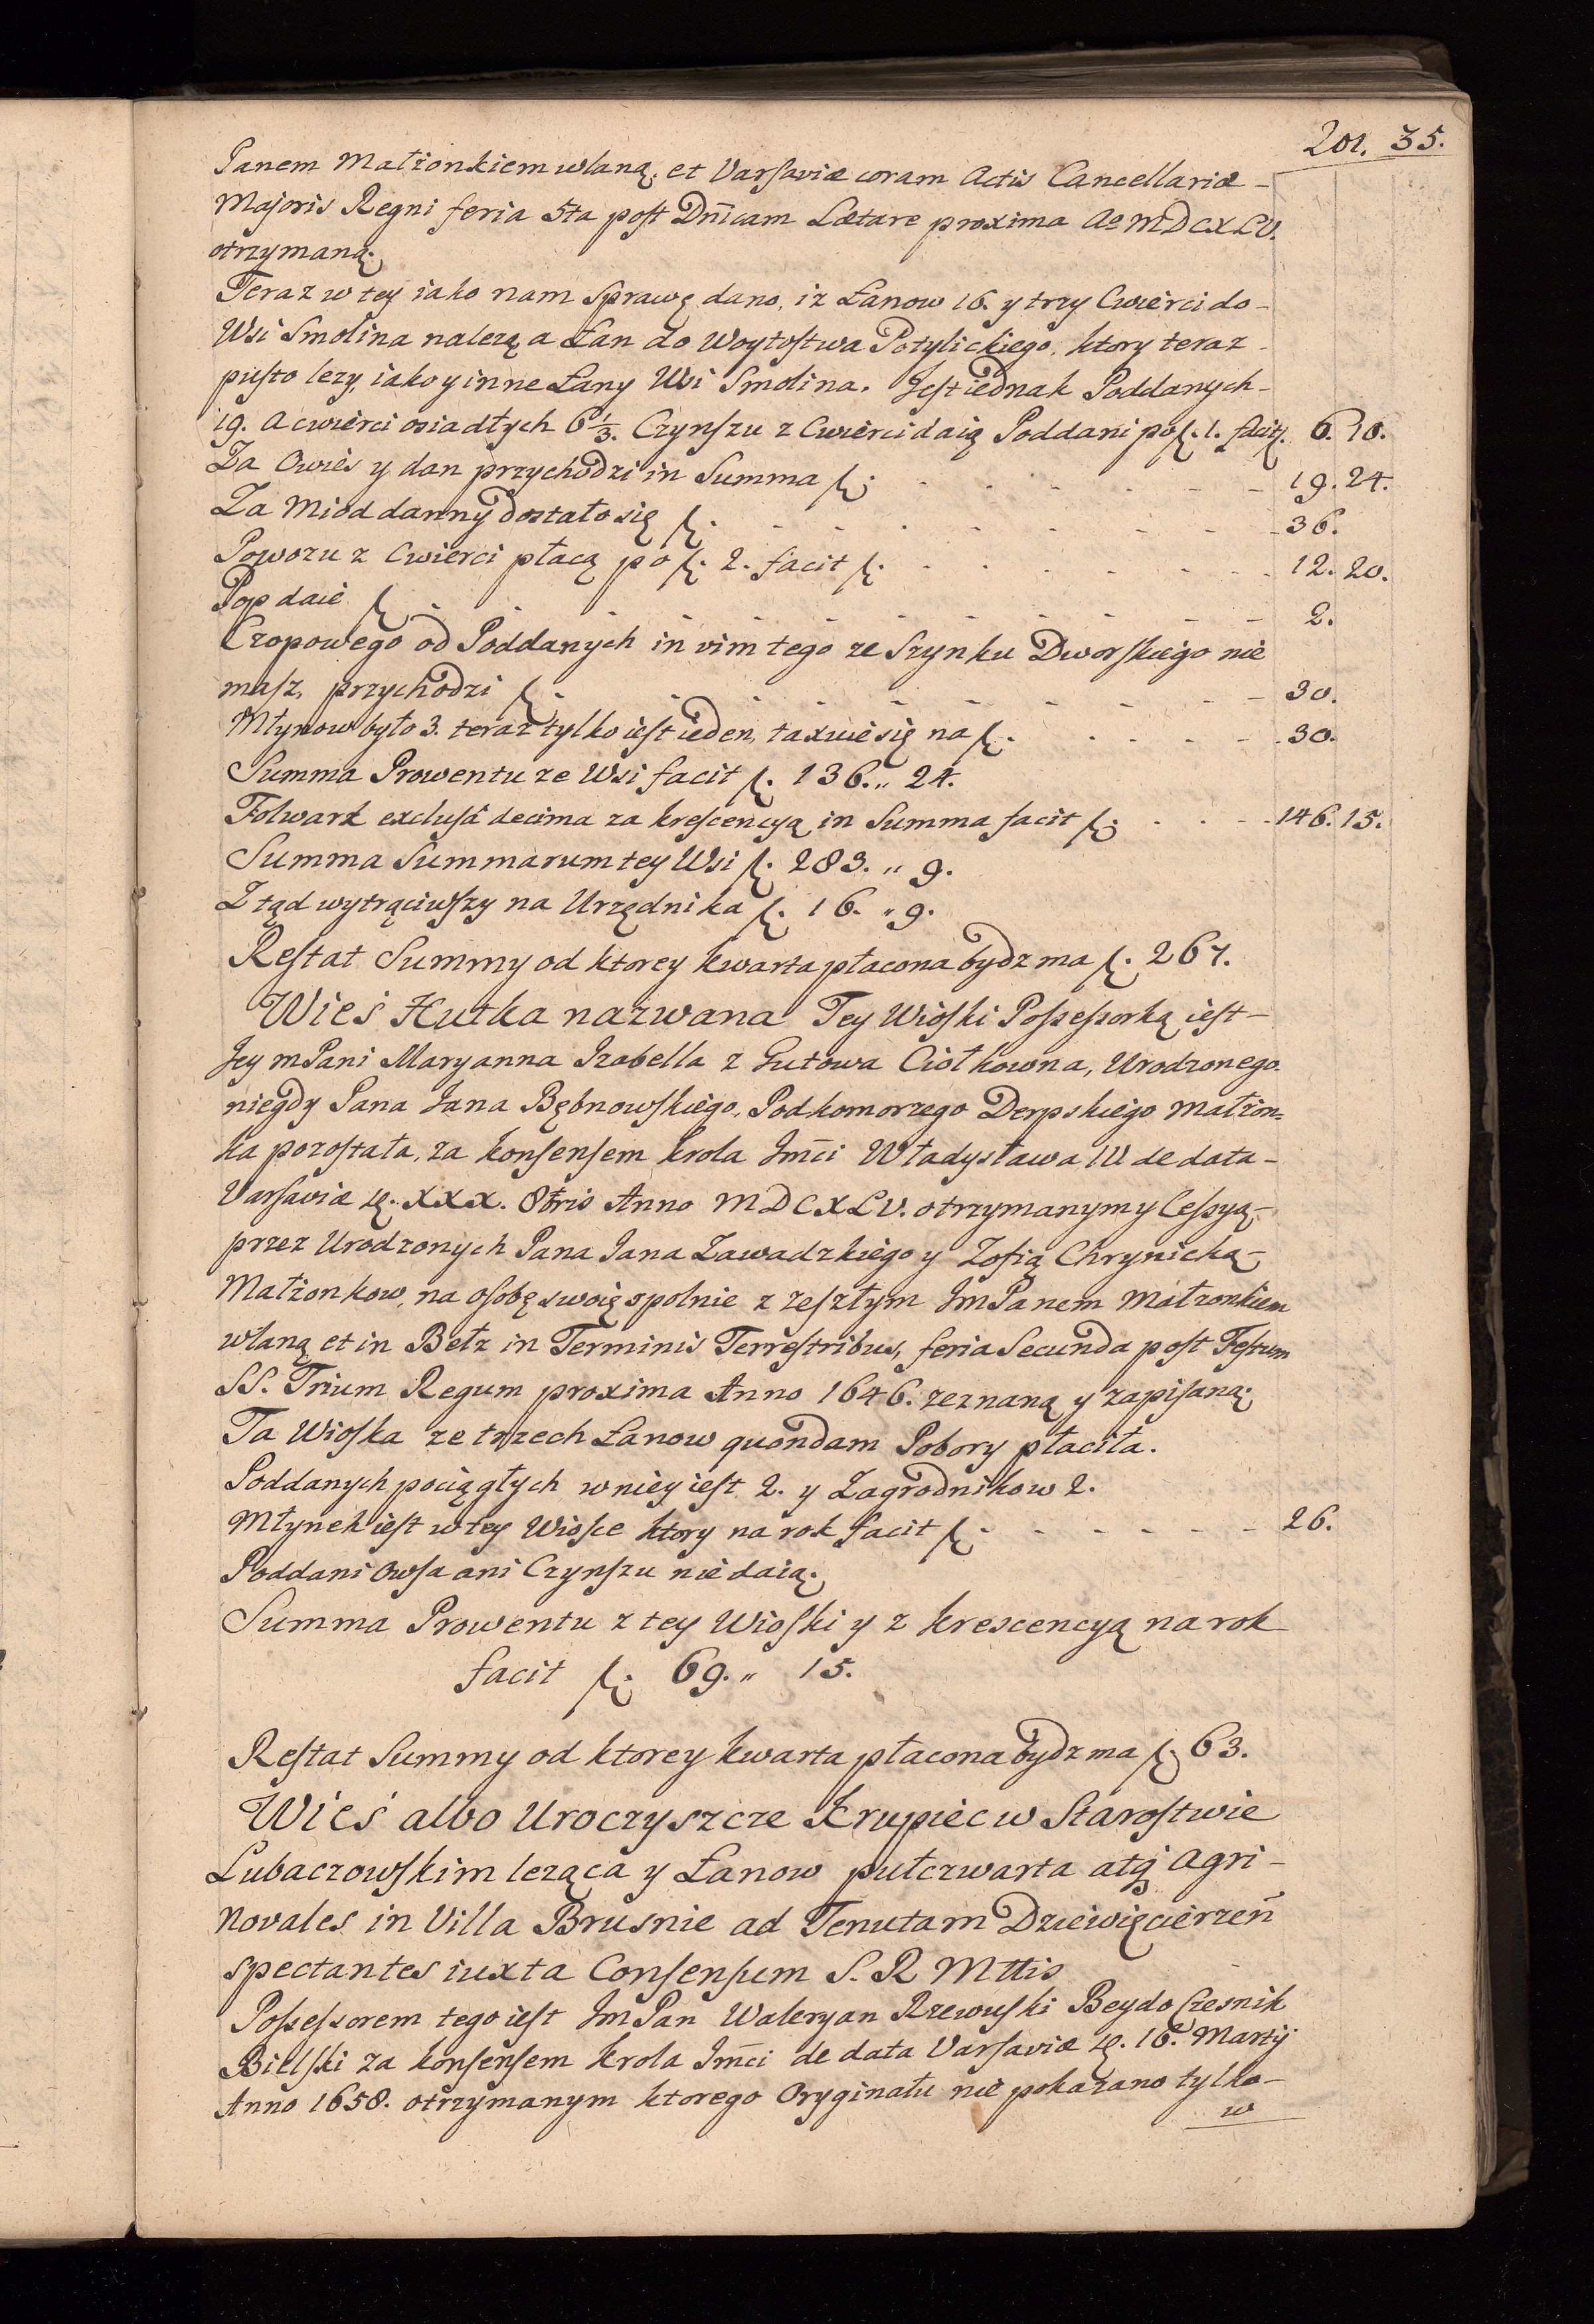 201. 35.
Panem Małżonkiem wlaną. et Varsaviæ coram Actis Cancellariæ -
Majoris Regni feria 5ta post Dnicam Lætare proxima Ao MDCXLV.
otrzymaną.
Teraz w tey iako nam Sprawę dano, iz Łanow 16. y trzy Cwierci do -
Wsi Smolina nalezą a Łan do Woytostwa Potylickiego, ktory teraz -
pusto lezy, iako y inne Łany Wsi Smolina. Jest iednak Poddanych -
19. a cwierci osiadłych 6 1/3. Czynszu z Cwierci daią Poddani po f. 1. facit f. 6. 10.
Za Owies y dan przychodzi in Summa f. - - - - - - 19. 24.
Za Miod danny dostało się f. - - - - - - - 36.
Powozu z Cwierci płacą po f. 2. facit f. - - - - - - 12. 20.
Pop daie f. - - - - - - - - - - 2.
Czopowego od Poddanych in vim tego ze Szynku Dworskiego nie
masz, przychodzi f. - - - - - - - - 30.
Młynow było 3. teraz tylko iest ieden, taxuie się na f. - - - - 30.
Summa Prowentu ze Wsi facit f. 136. „ 24.
Folwark exclusâ decima za krescencyą in Summa facit f. - - - 146. 15.
Summa Summarum tey Wsi f. 283. „ 9.
Ztąd wytrąciwszy na Urzędnika f. 16. „ 9.
Restat Summy od ktorey kwarta płacona bydz ma f. 267.
Wieś Hutka nazwana Tey Wioski Possessorką iest -
Jey mPani Maryanna Izabella z Gutowa Ciołkowna, Urodzonego
niegdy Pana Jana Bębnowskiego, Podkomorzego Derpskiego Małżon=
ka pozostała, za konsensem Krola Jmci Władysława IV de data -
Varsaviæ d. XXX. 8bris Anno MDCXLV. otrzymanym y Cessyą -
przez Urodzonych Pana Jana Zawadzkiego y Zofią Chrynicką -
Małżonkow, na osobę swoię spolnie z zeszłym Jm Panem Małzonkiem
wlaną et in Bełz in Terminis Terrestribus, feria Secunda post Festum
SS. Trium Regum proxima Anno 1646. zeznaną y zapisaną.
Ta Wioska ze trzech Łanow quondam Pobory płaciła.
Poddanych pociągłych w niey iest 2. y Zagrodnikow 2.
Młynek iest w tey Wiosce ktory na rok facit f. - - - - - - 26.
Poddani Owsa ani Czynszu nie daią.
Summa Prowentu z tey Wioski y z krescencyą na rok
facit f. 69. „ 15.
Restat Summy od ktorey kwarta płacona bydz ma f. 63.
Wieś albo Uroczyszcze Krupiec w Starostwie
Lubaczowskim leząca y Łanow pułczwarta atq agri -
Novales in Villa Brusnie ad Tenutam Dziewięcierzeń
spectantes iuxta Consensum S. R. Mttis
Possessorem tego iest Jm Pan Waleryan Rzewuski Beydo Czesnik
Bielski za konsensem Krola Jmci de data Varsaviæ d. 16. Martij
Anno 1658. otrzymanym ktorego Oryginału nie pokazano tylko -
w